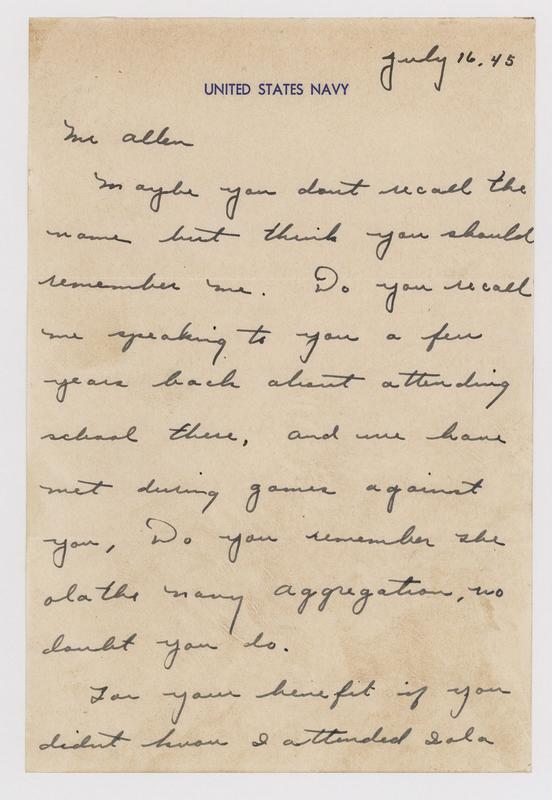 July 16. 45
UNITED STATES NAVY
Mr Allen
Maybe you dont recall the
name but think you should
remember me. Do you recall
me speaking to you a few
years back about attending
school there, and we have
met during games against
you, Do you remember the
olathe navy aggregation, no
doubt you do.
For your benefit if you
didnt know I attended Iola